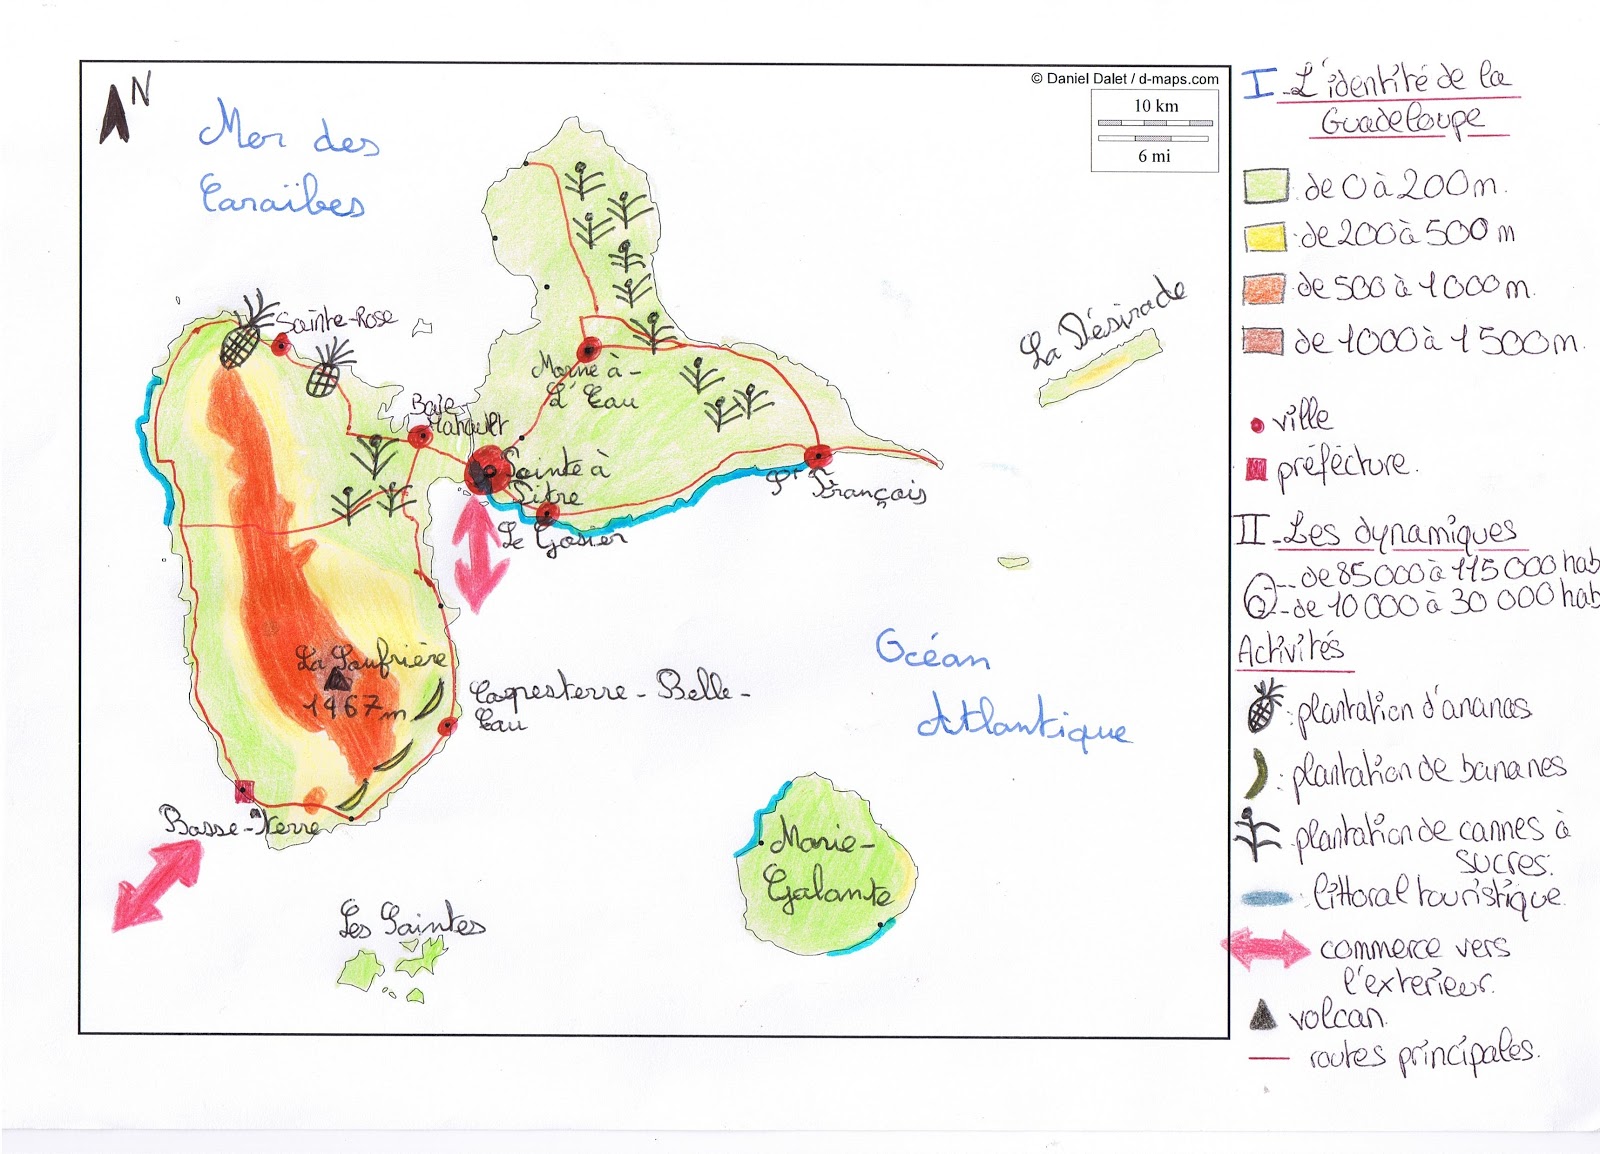 N
Mer des
Caraïbes
© Daniel Dalet / d-maps.com
10 km
6 mi
Sainte-Rose
Baie
Mahault
Morne à-
L'Eau
Pointe à
Pitre
Le Gosier
St François
La Désirade
La Soufrière
1467m
Capesterre-Belle-
Eau
Basse-Terre
Les Saintes
Océan
Atlantique
Marie-
Galante
I-L'identité de la
Guadeloupe
de 0 à 200m.
de 200 à 500m
de 500 à 1000m.
de 1000 à 1500m.
ville
préfecture.
II-Les dynamiques
de 85000 à 115000 hab
de 10 000 à 30 000 hab
Activités
: plantation d'ananas
: plantation de bananes
plantation de cannes à
sucres.
: littoral touristique.
commerce vers
l'exterieur.
volcan.
routes principales.